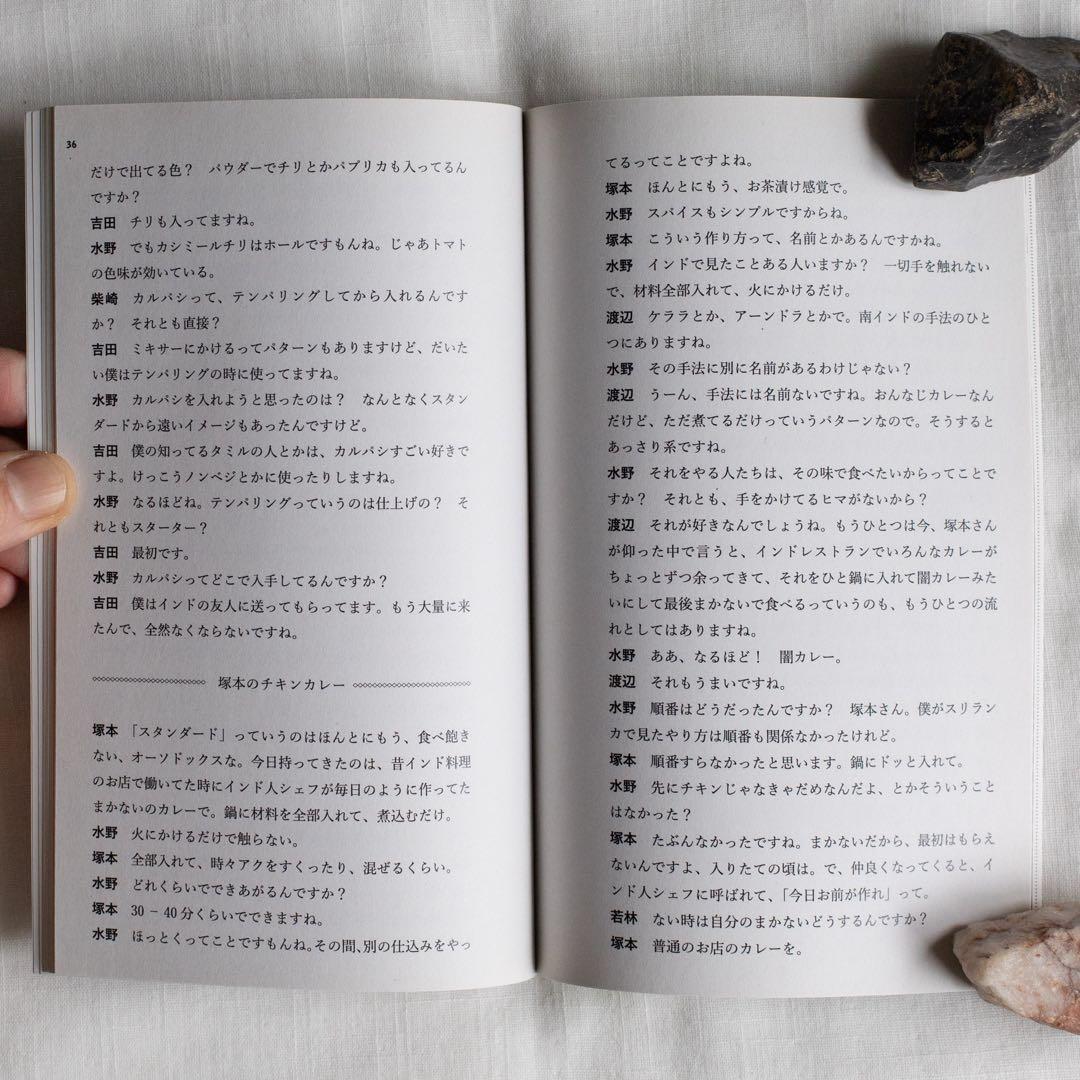 36
だけで出てる色？　パウダーでチリとかパプリカも入ってるん
ですか？
吉田　チリも入ってますね。
水野　でもカシミールチリはホールですもんね。じゃあトマト
の色味が効いている。
柴崎　カルパシって、テンパリングしてから入れるんです
か？　それとも直接？
吉田　ミキサーにかけるってパターンもありますけど、だいた
い僕はテンパリングの時に使ってますね。
水野　カルパシを入れようと思ったのは？　なんとなくスタン
ダードから遠いイメージもあったんですけど。
吉田　僕の知ってるタミルの人とかは、カルパシすごい好きで
すよ。けっこうノンベジとかに使ったりしますね。
水野　なるほどね。テンパリングっていうのは仕上げの？　そ
れともスターター？
吉田　最初です。
水野　カルパシってどこで入手してるんですか？
吉田　僕はインドの友人に送ってもらってます。もう大量に来
たんで、全然なくならないですね。
塚本のチキンカレー
塚本　「スタンダード」っていうのはほんとにもう、食べ飽き
ない、オーソドックスな。今日持ってきたのは、昔インド料理
のお店で働いてた時にインド人シェフが毎日のように作ってた
まかないのカレーで。鍋に材料を全部入れて、煮込むだけ。
水野　火にかけるだけで触らない。
塚本　全部入れて、時々アクをすくったり、混ぜるくらい。
水野　どれくらいでできあがるんですか？
塚本　30 − 40 分くらいでできますね。
水野　ほっとくってことですもんね。その間、別の仕込みをやっ
てるってことですよね。
塚本　ほんとにもう、お茶漬け感覚で。
水野　スパイスもシンプルですからね。
塚本　こういう作り方って、名前とかあるんですかね。
水野　インドで見たことある人いますか？　一切手を触れない
で、材料全部入れて、火にかけるだけ。
渡辺　ケララとか、アーンドラとかで。南インドの手法のひと
つにありますね。
水野　その手法に別に名前があるわけじゃない？
渡辺　うーん、手法には名前ないですね。おんなじカレーなん
だけど、ただ煮てるだけっていうパターンなので。そうすると
あっさり系ですね。
水野　それをやる人たちは、その味で食べたいからってことで
すか？　それとも、手をかけてるヒマがないから？
渡辺　それが好きなんでしょうね。もうひとつは今、塚本さん
が仰った中で言うと、インドレストランでいろんなカレーが
ちょっとずつ余ってきて、それをひと鍋に入れて闇カレーみた
いにして最後まかないで食べるっていうのも、もうひとつの流
れとしてはありますね。
水野　ああ、なるほど！　闇カレー。
渡辺　それもうまいですね。
水野　順番はどうだったんですか？　塚本さん。僕がスリラン
カで見たやり方は順番も関係なかったけれど。
塚本　順番すらなかったと思います。鍋にドッと入れて。
水野　先にチキンじゃなきゃだめなんだよ、とかそういうこと
はなかった？
塚本　たぶんなかったですね。まかないだから、最初はもらえ
ないんですよ、入りたての頃は。で、仲良くなってくると、イ
ンド人シェフに呼ばれて、「今日お前が作れ」って。
若林　ない時は自分のまかないどうするんですか？
塚本　普通のお店のカレーを。